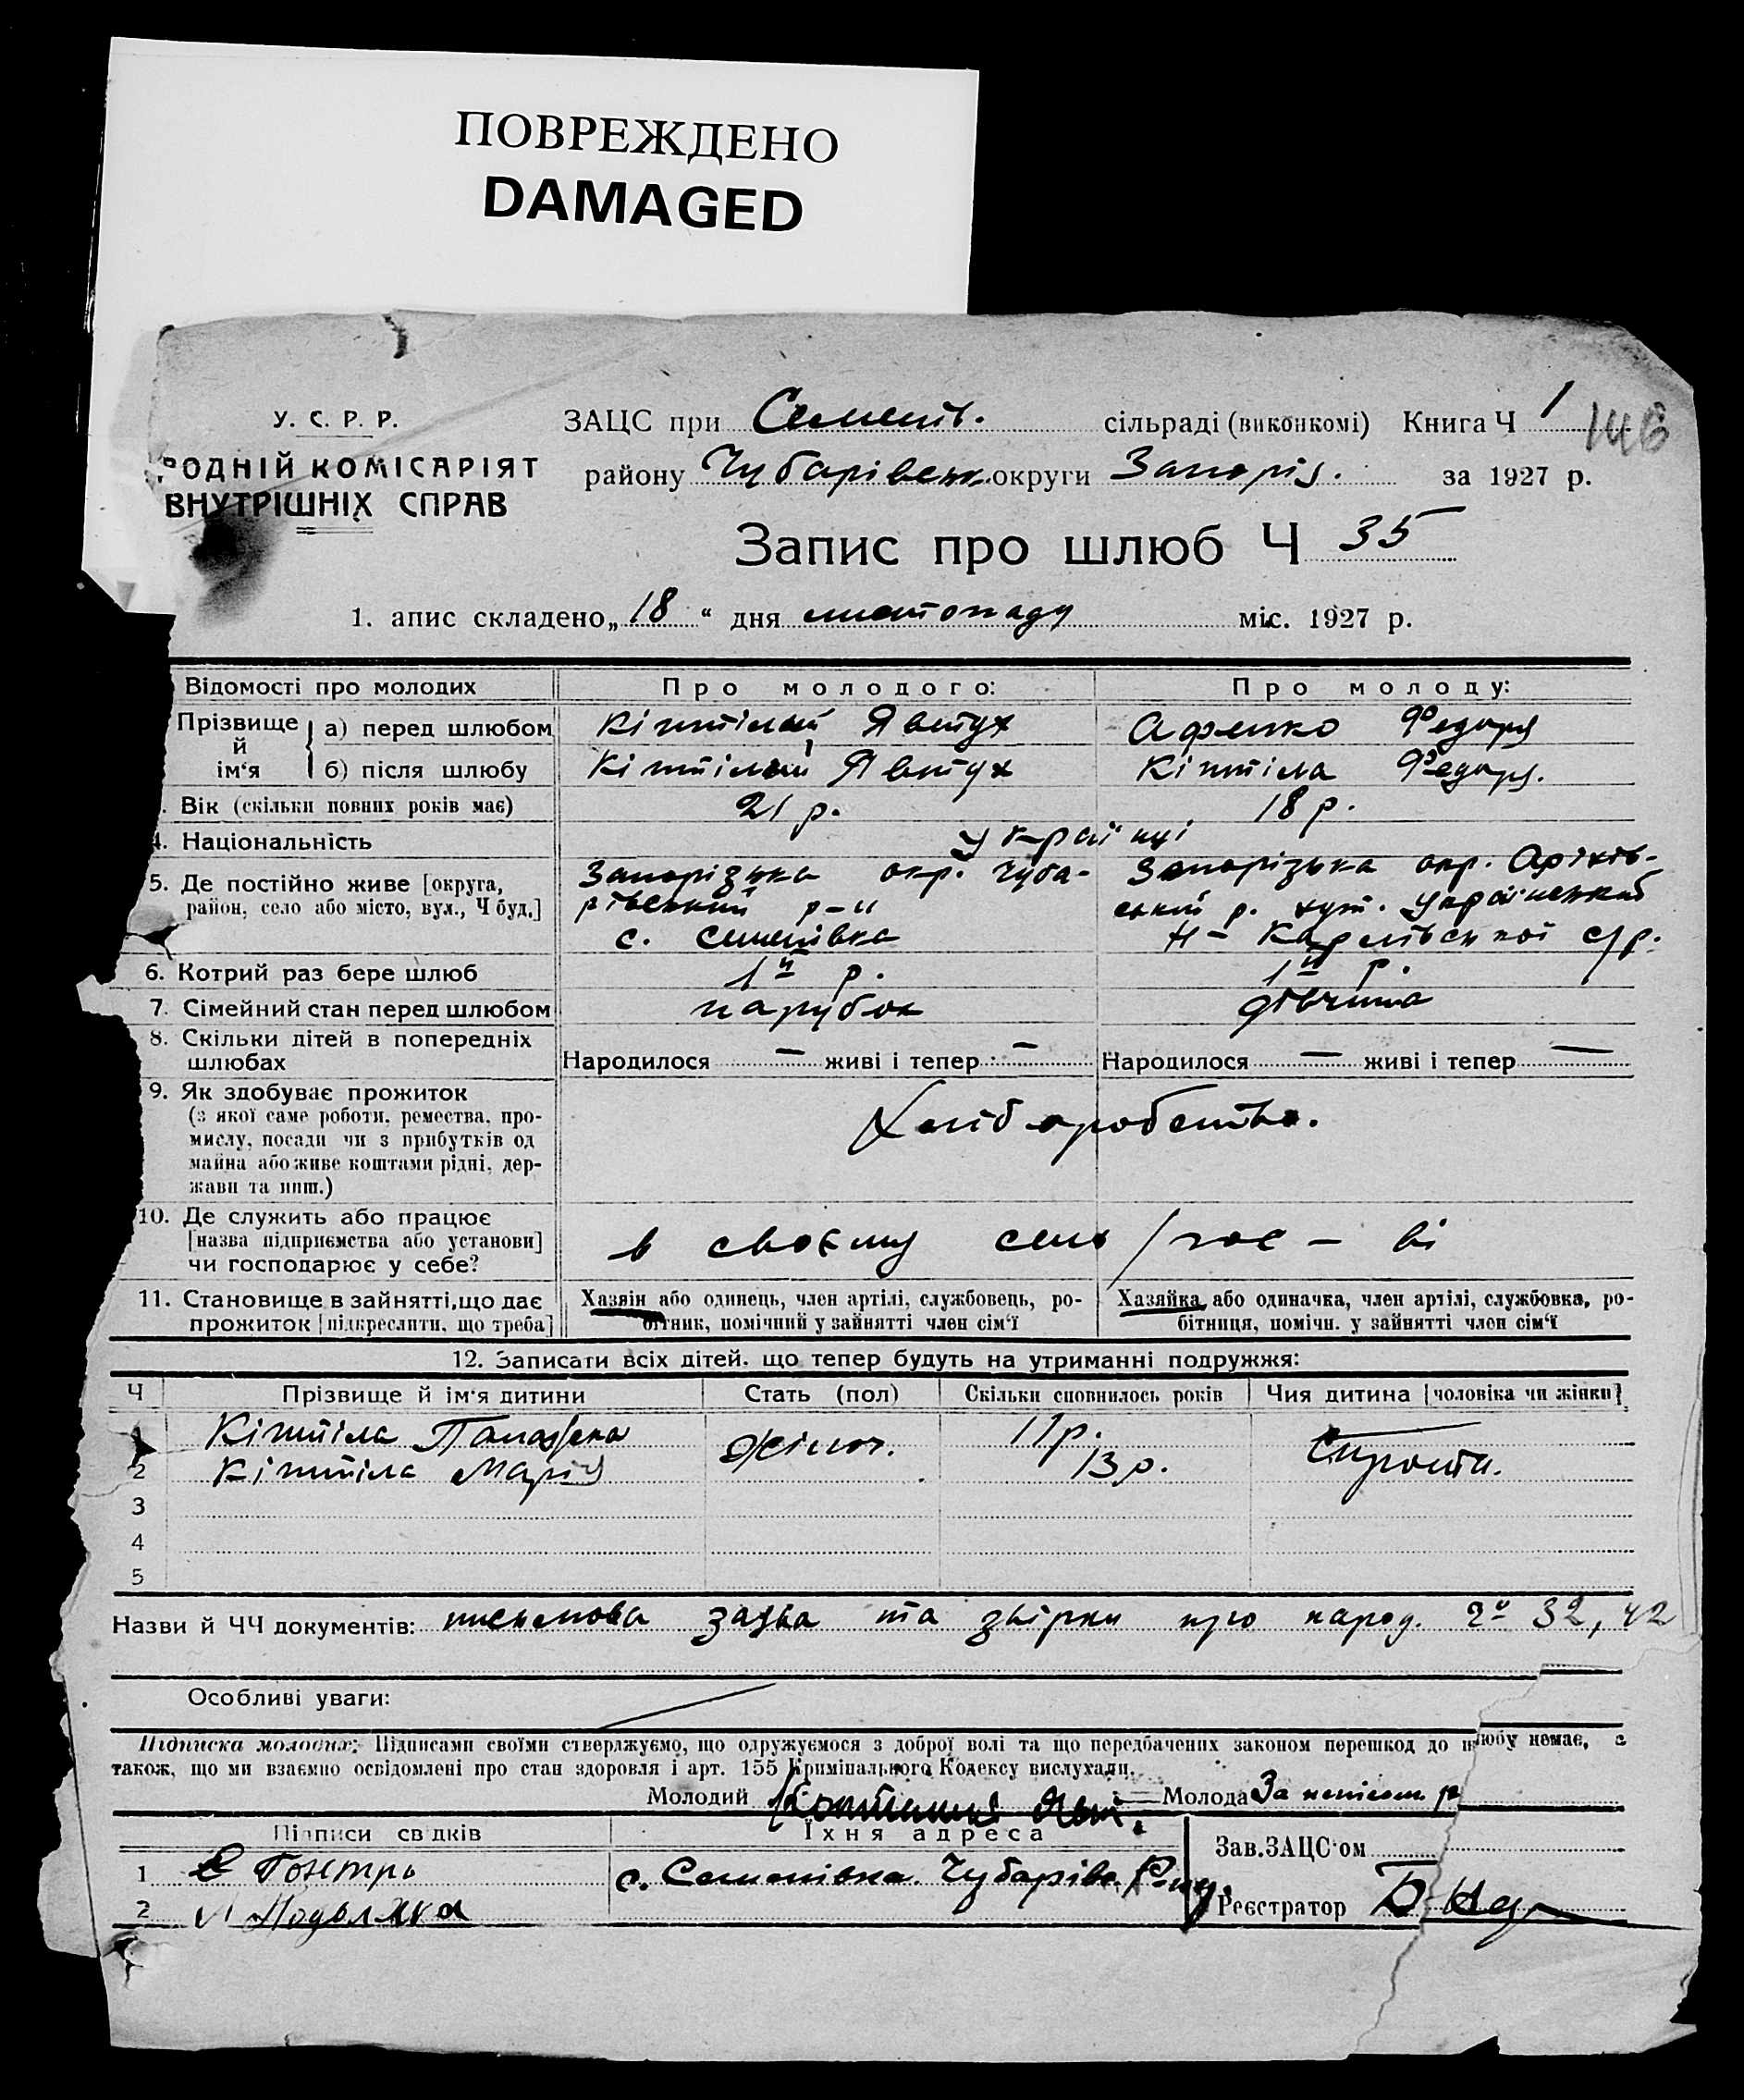 ПОВРЕЖДЕНО
DAMAGED
У. С. Р. Р.
РОДНІЙ КОМІСАРІЯТ
ВНУТРІШНІХ СПРАВ
ЗАЦС при Семенів. сільраді (виконкомі) Книга Ч 1
146
району Чубарівськ. округи Запоріз. за 1927 р.
Запис про шлюб Ч 35
1. апис складено „18“ дня листопаду міс. 1927 р.
Відомості про молодих Про молодого: Про молоду:
Прізвище й ім‘я
а) перед шлюбом Явтух Федора
б) після шлюбу Явтух Кіптіла Федора.
. Вік (скільки повних років має) 21 р. 18 р.
4. Національність Українці
5. Де постійно живе [округа, район, село або місто, вул., Ч буд.]
Запорізька окр. Чуба-
рівський р-н
с. Семенівка
Запорізька окр. Оріхів-
ський р. хут.
Н- Карлівської с/р.
6. Котрий раз бере шлюб 1й р. 1й р.
7. Сімейний стан перед шлюбом парубок дівчина
8. Скільки дітей в попередніх шлюбах
Народилося — живі і тепер — Народилося — живі і тепер —
9. Як здобуває прожиток
(з якої саме роботи, ремества, про-
мислу, посади чи з прибутків од
майна або живе коштами рідні, дер-
жави та инш.)
Хліборобство.
10. Де служить або працює
[назва підприємства або установи]
чи господарює у себе?
в своєму селі
11. Становище в зайнятті, що дає
прожиток [підкреслити, що треба]
Хазяін або одинець, член артілі, службовець, ро-
бітник, помічний у зайнятті член сім‘ї
Хазяйка або одиначка, член артілі, службовка, ро-
бітниця, помічн. у зайнятті член сім‘ї
12. Записати всіх дітей. що тепер будуть на утриманні подружжя:
Ч Прізвище й ім‘я дитини Стать (пол) Скільки сповнилось років Чия дитина [чоловіка чи жінки]
1 Кіптіла Жіноч. 11 р. Сироти.
2 Кіптіла Марія 13 р.
3
4
5
Назви й ЧЧ документів: письмова заява та звірки про народ. 32, 42
Особливі уваги:
Підписка молодих: Підписами своїми стверджуємо, що одружуємося з доброї волі та що передбачених законом перешкод до шлюбу немає, а
також, що ми взаємно освідомлені про стан здоровля і арт. 155 Кримінального Кодексу вислухали.
Молодий Молода За непісьм.
Підписи свідків Їхня адреса Зав.ЗАЦС‘ом
1 с. Семенівка Чубарівс.
2 Подоляка Реєстратор